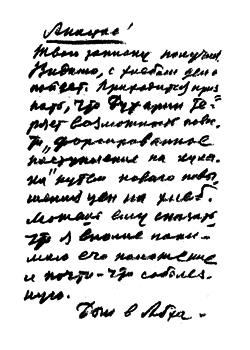 Анастас!
Твою записку получил.
Видимо, с хлебом дело
пойдет. Приходится приз
нать, что Бухарин те-
ряет возможность повес-
ти „форсированное
наступление на кула-
ка" путем нового повы-
шения цен на хлеб.
Можешь ему сказать,
что я вполне пони-
маю его положение
и почти-что соболез-
ную.
Был в